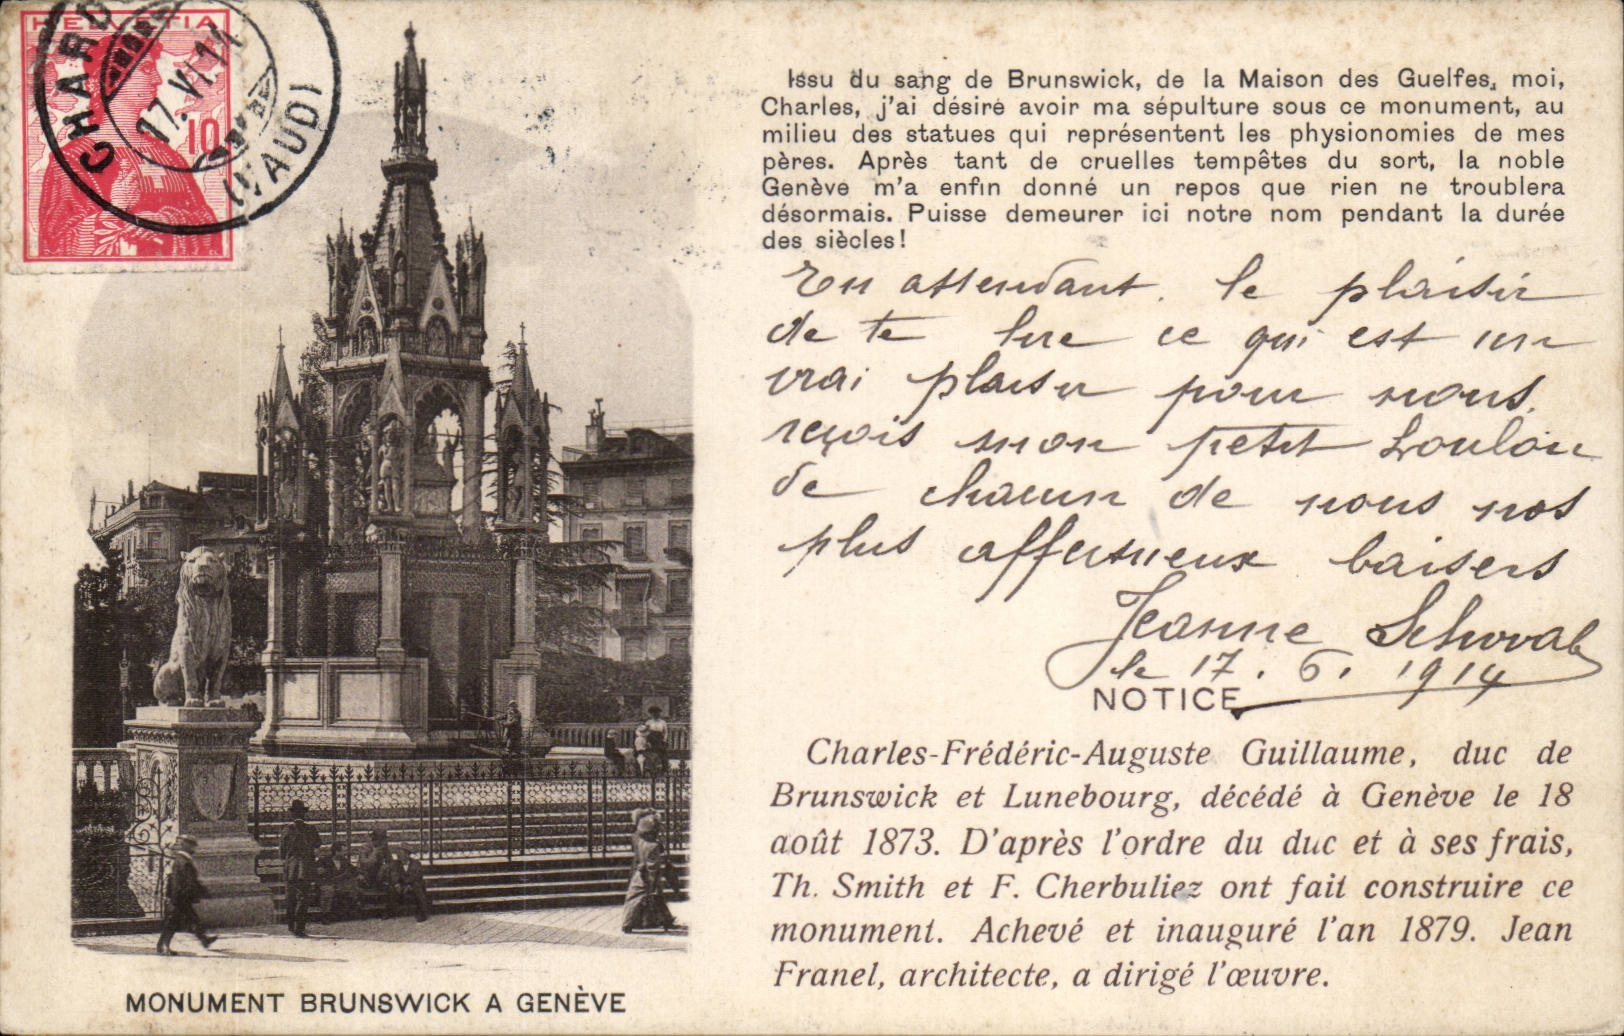 HELVETIA
10
CHARD
17.VI.14
(VAUD)
Issu du sang de Brunswick, de la Maison des Guelfes, moi,
Charles, j'ai désiré avoir ma sépulture sous ce monument, au
milieu des statues qui représentent les physionomies de mes
pères. Après tant de cruelles tempêtes du sort, la noble
Genève m'a enfin donné un repos que rien ne troublera
désormais. Puisse demeurer ici notre nom pendant la durée
des siècles!
En attendant le plaisir
de te lire ce qui est un
vrai plaisir pour nous,
reçois mon petit Loulou
de chacun de nous nos
plus affectueux baisers
Jeanne
le 17. 6. 1914
NOTICE
Charles-Frédéric-Auguste Guillaume, duc de
Brunswick et Lunebourg, décédé à Genève le 18
août 1873. D'après l'ordre du duc et à ses frais,
Th. Smith et F. Cherbuliez ont fait construire ce
monument. Achevé et inauguré l'an 1879. Jean
Franel, architecte, a dirigé l'œuvre.
MONUMENT BRUNSWICK A GENÈVE